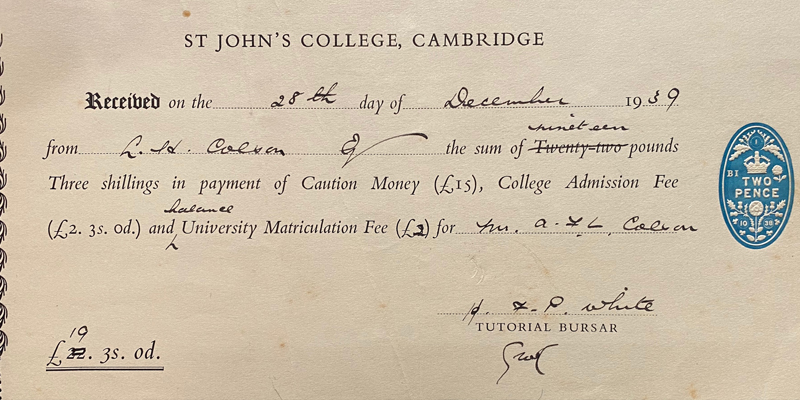 ST JOHN'S COLLEGE, CAMBRIDGE
Received on the 28th day of December 1939
nineteen
from L. H. Colson Esq the sum of Twenty-two pounds
Three shillings in payment of Caution Money (£15), College Admission Fee
balance
(£2. 3s. 0d.) and University Matriculation Fee (£2) for Mr. A. F. L. Colson
H. F. P. White
TUTORIAL BURSAR
19
£22. 3s. 0d.
BI
TWO
PENCE
10 38